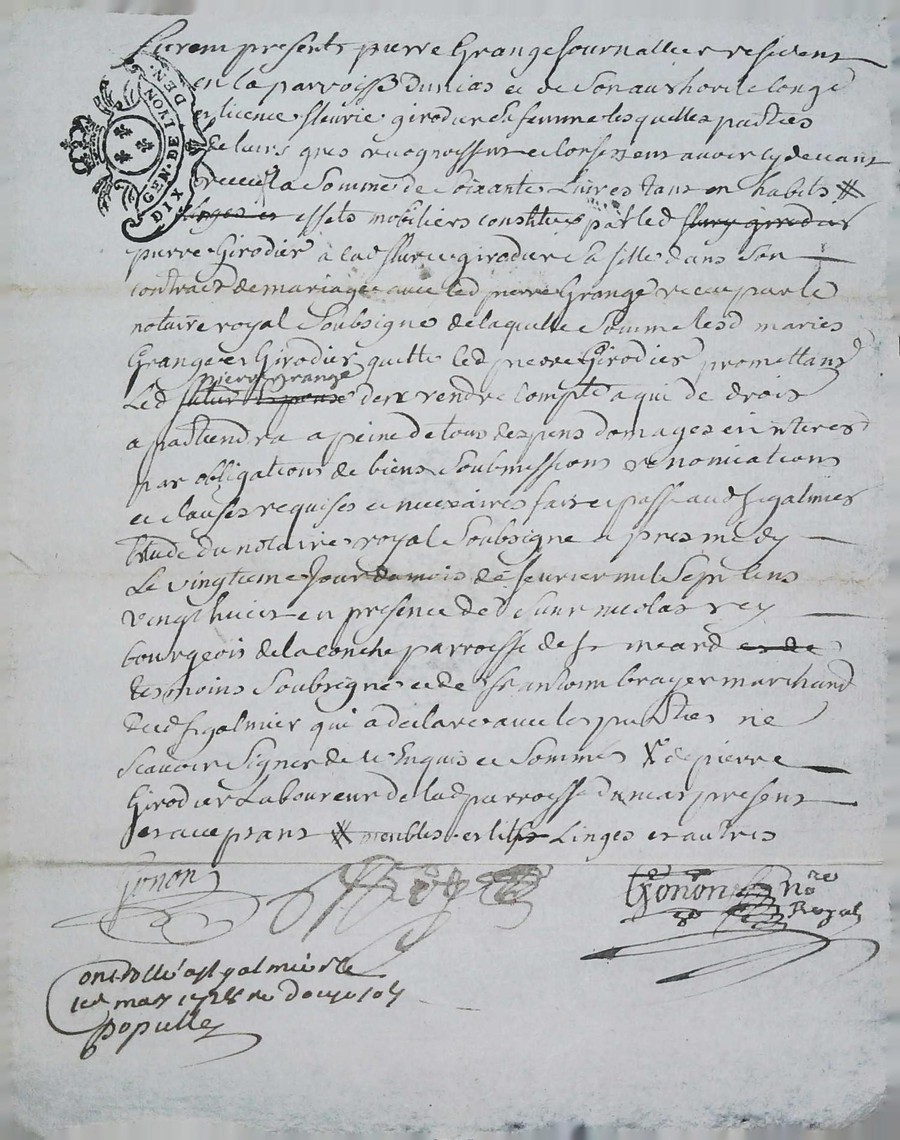 Furent presents pierre Grange Journallier resident
en la parroisse Dunias et de Son authorite longe
et licence fleurie girodier Sa femme lesquelles parties
de leurs grés recognoissent et Confessent avoir cy devant
receu la Somme de Soixante Livres tant en habits #
linges et effets mobiliers constitués par led fleury girodier
pierre Girodier à lad fleurie girodier Sa fille dans Son
contract de mariage avec led pierre Grange receu par le
notaire royal Soubsigné de laquelle Somme lesd mariés
Grange et Girodier quitte led pierre Girodier promettant
pierre Grange
Led futur Espoux den rendre Compte a qui de droit
apartiendra a peine de tous despens domages et interest
par obligations de biens Soubmissions renonciations
et clauses requises et necessaires fait et passé aud St galmier
Etude du notaire royal Soubsigné apres midy
Le vingtieme Jour du mois de fevrier mil Sept Cens
vingt huict en presence de Sieur nicolas rey
bourgeois de la conche parroisse de St meard et de
tesmoins Soubsigné et de Sr anthoine brayer marchand
dud St galmier qui a declaré avec les parties ne
Scavoir Signer de ce Enquis et Sommés X et pierre
Girodier Laboureur de lad parroisse Dunias present
et aceptant # meubles et lits Linges et autres
Gonon
Gonon nore
Royal
Controllé a St galmier le
1er mars 1728 re douze sols
populle